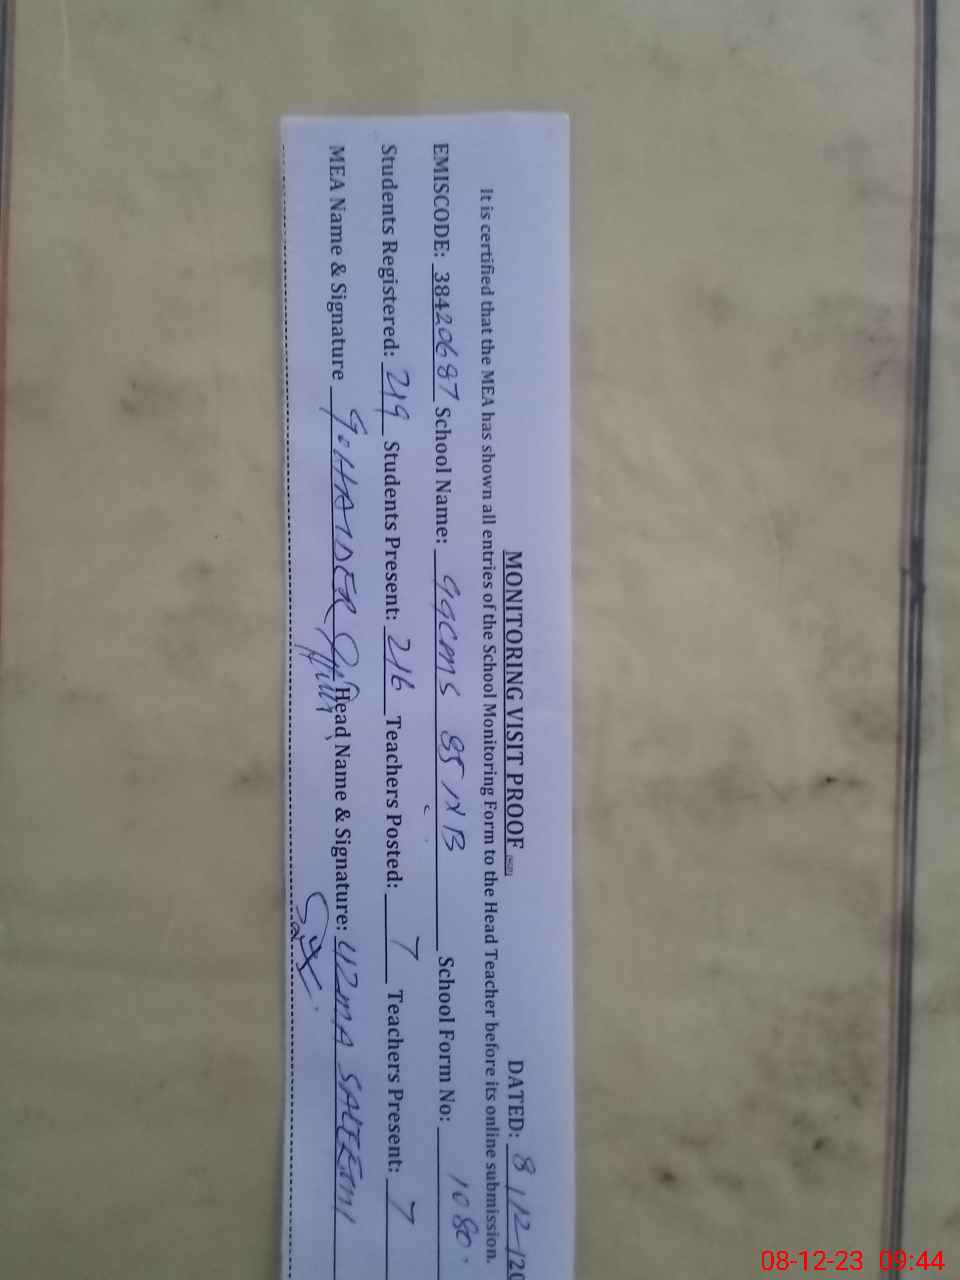 MONITORING VISIT PROOF
DATED: 8/12/20
It is certified that the MEA has shown all entries of the School Monitoring Form to the Head Teacher before its online submission.
EMISCODE: 38420687 School Name: GGCMS 85 NB School Form No: 1080
Students Registered: 219 Students Present: 216 Teachers Posted: 7 Teachers Present: 7
MEA Name & Signature G. HAIDER Head Name & Signature: UZMA SALEEMI
08-12-23 09:44